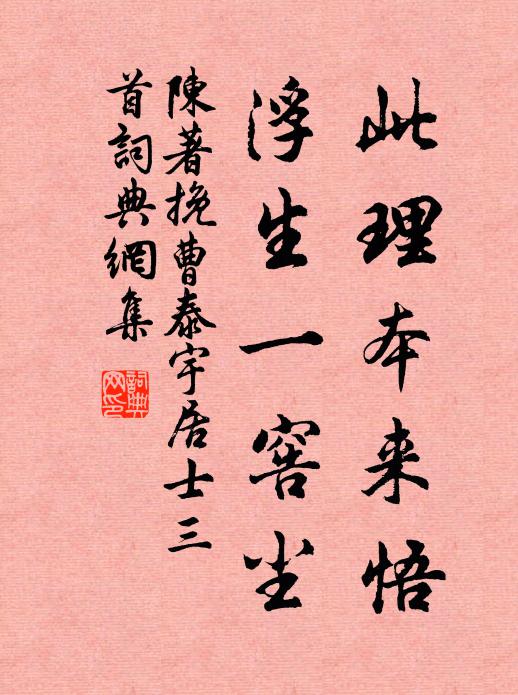 此理本来悟
浮生一窖尘
陳著挽曹泰宇居士三
首詞典網集
詞典
网印